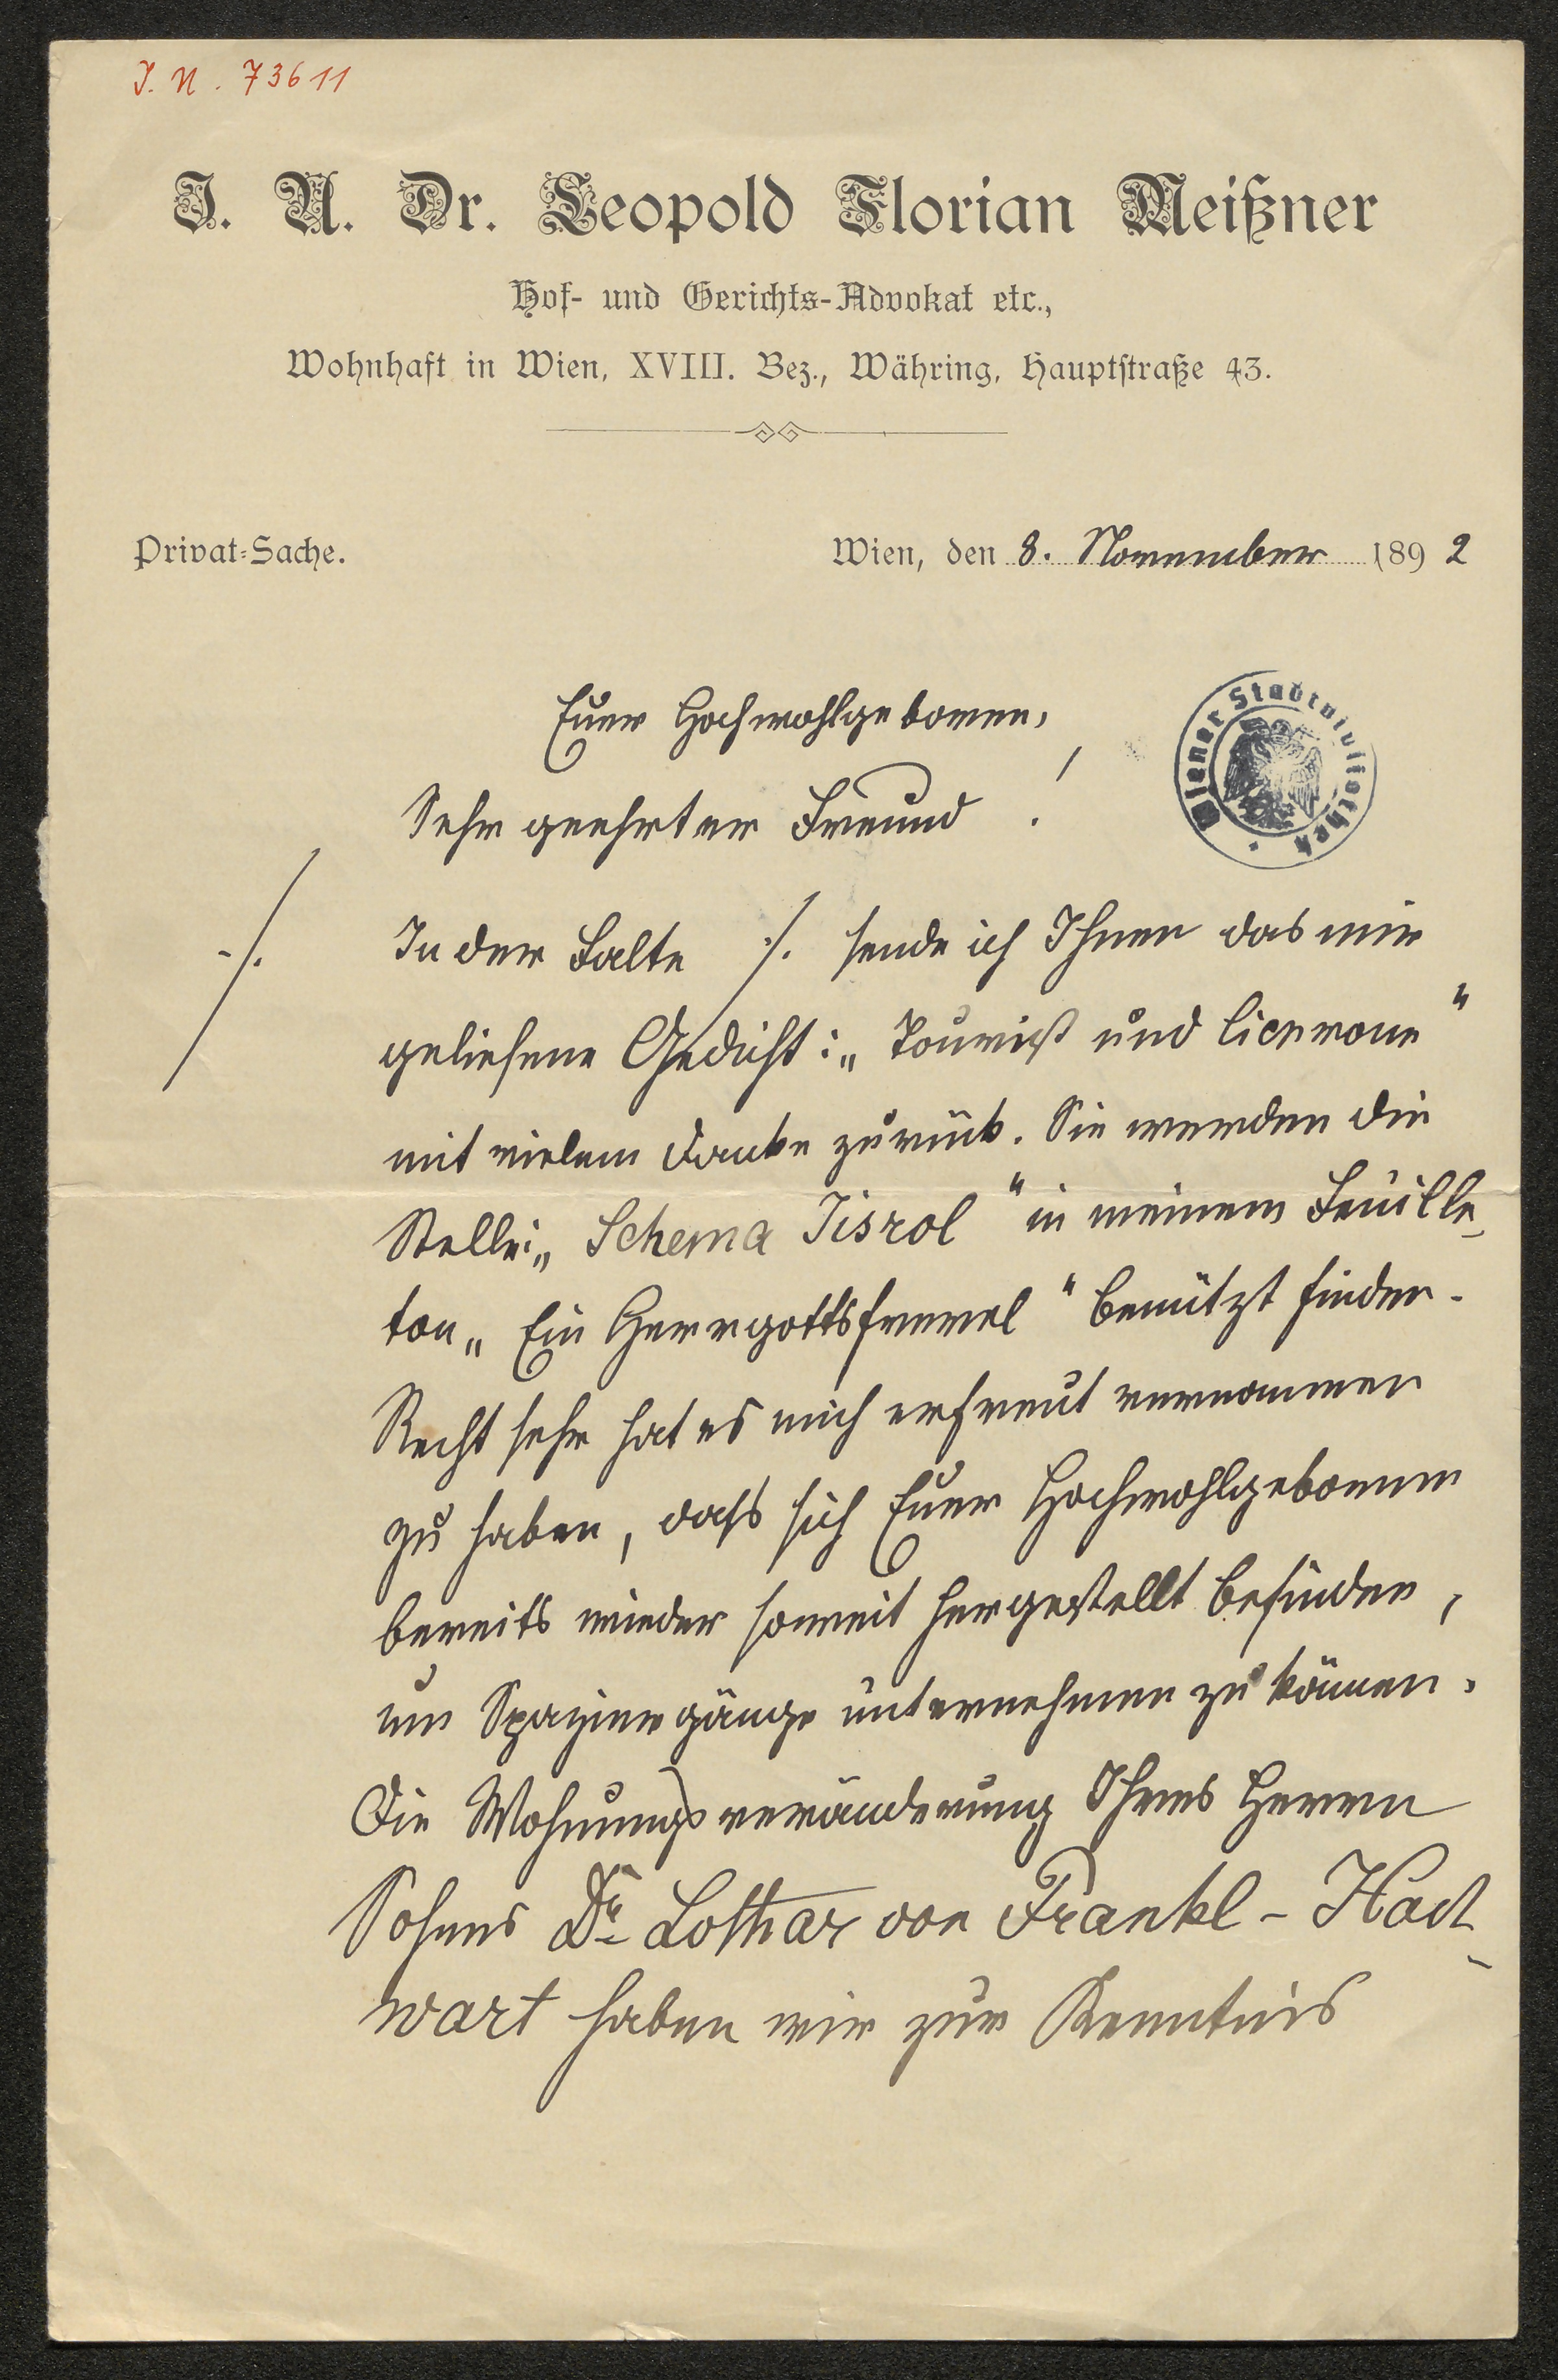 J. N. 73611
J. U. Dr. Leopold Florian Meißner
Hof- und Gerichts-Advokat etc.,
Wohnhaft in Wien, XVIII. Bez., Währing, Hauptstraße 43.
Privat-Sache.
Wien, den 8. November 1892
Euer Hochwohlgeboren,
Sehr geehrter Freund !
Wiener Stadtbibliothek
./.
In der Falte ./. sende ich Ihnen das mir
geliehene Gedicht: „Tourist und Cicerone“
mit vielem Danke zurück. Sie werden die
Stelle: „Schema Jisrol“ in meinem Feuille-
ton „Ein Herrgottsfrevel“ benützt finden.
Recht sehr hat es mich erfreut vernommen
zu haben, dass sich Euer Hochwohlgeboren
bereits wieder soweit hergestellt befinden,
um Spaziergänge unternehmen zu können.
Die Wohnungsveränderung Ihres Herrn
Sohnes Dr. Lothar von Frankl-Hoch-
wart haben wir zur Kenntnis